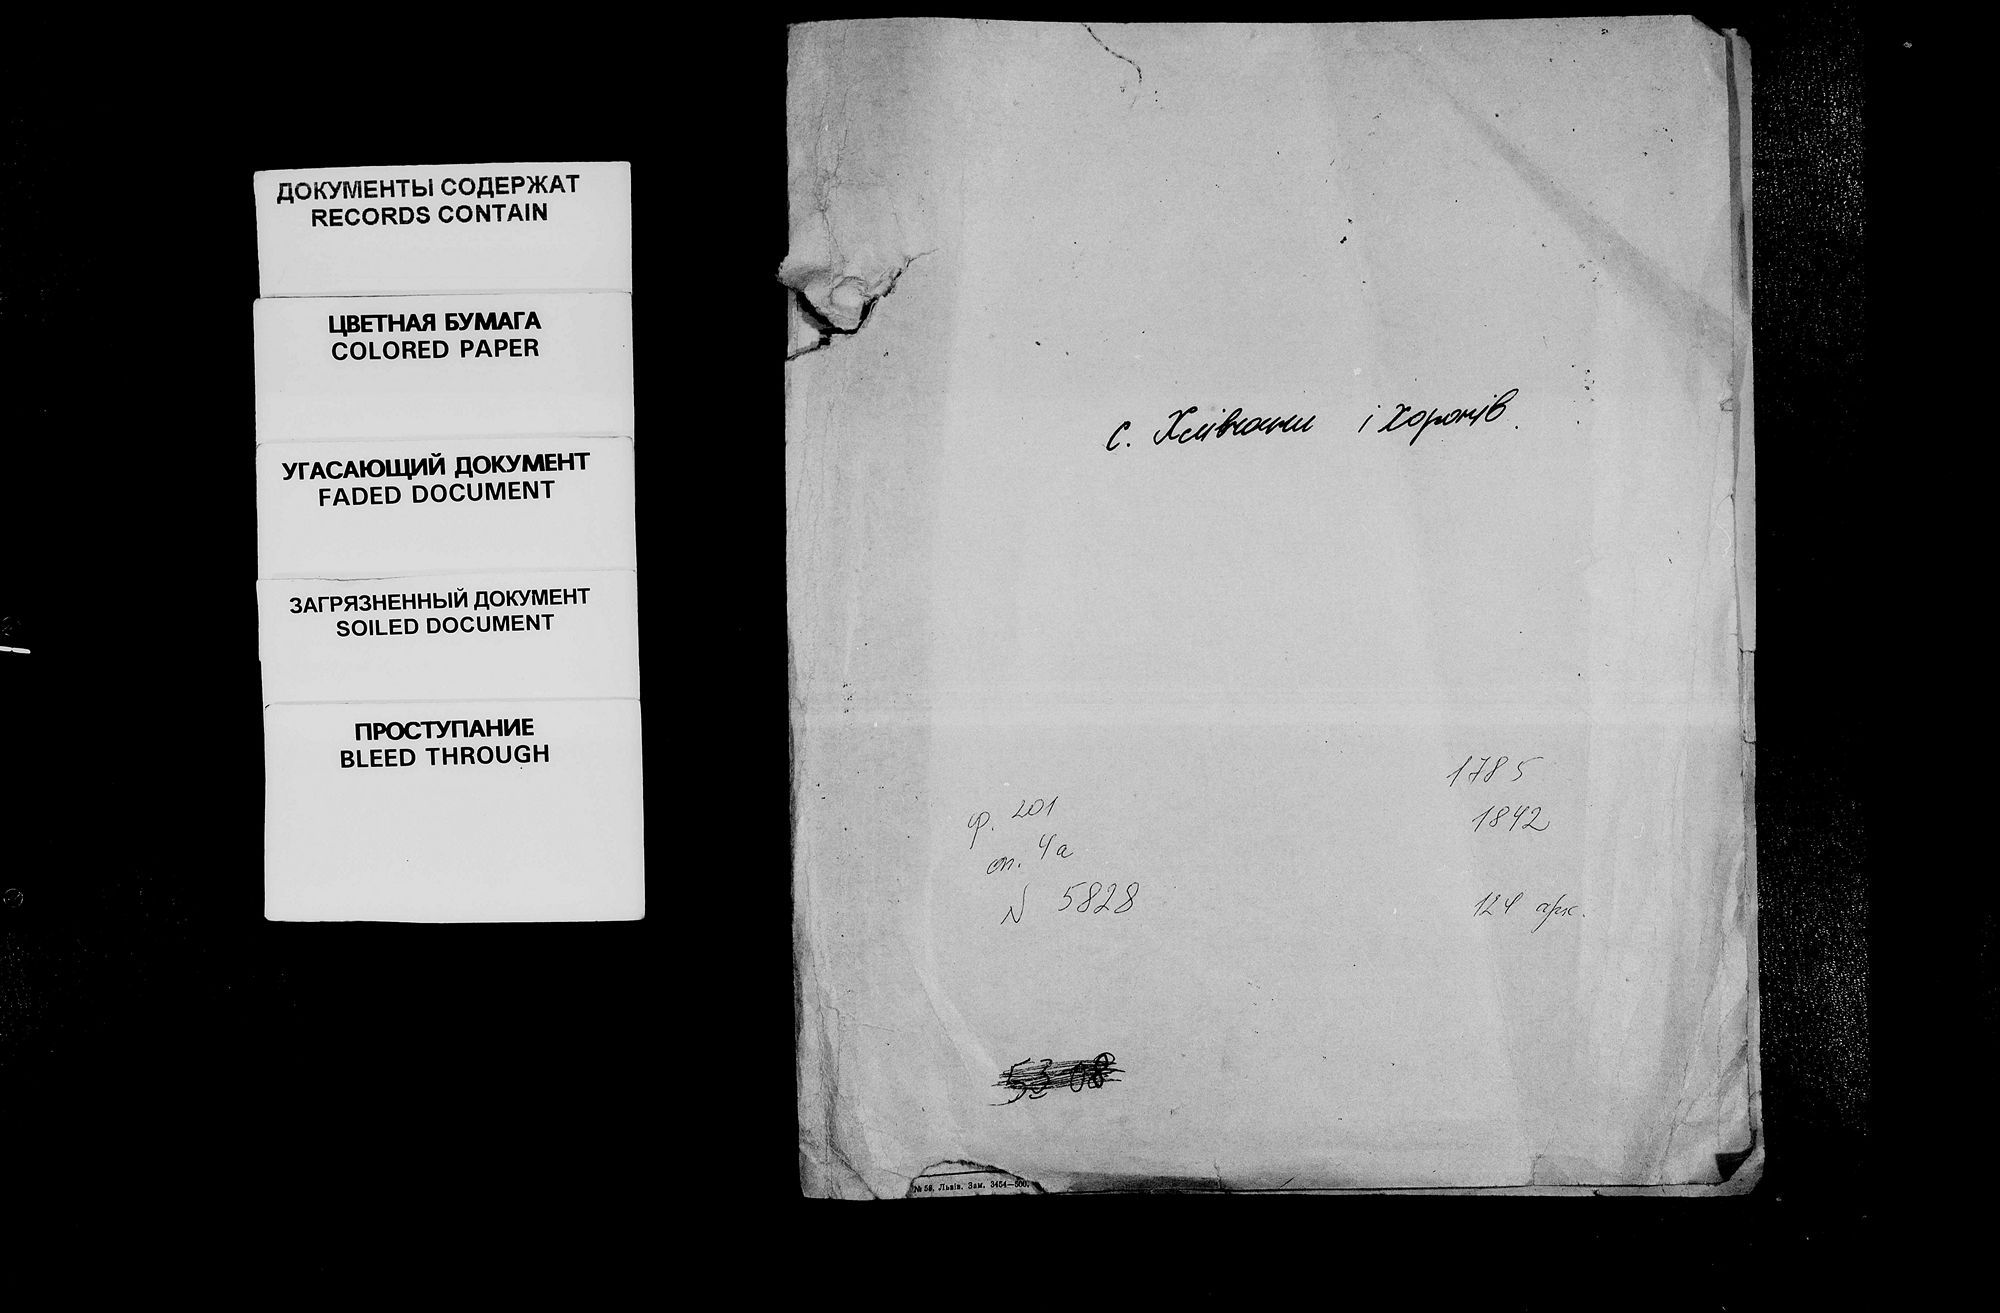 ДОКУМЕНТЫ СОДЕРЖАТ
RECORDS CONTAIN
ЦВЕТНАЯ БУМАГА
COLORED PAPER
УГАСАЮЩИЙ ДОКУМЕНТ
FADED DOCUMENT
ЗАГРЯЗНЕННЫЙ ДОКУМЕНТ
SOILED DOCUMENT
ПРОСТУПАНИЕ
BLEED THROUGH
с. Хлівчани і Хоронів
1785
1842
ф. 201
оп. 4а
N 5828
124 арк.
53 08
№ 58. Львів. Зам. 3454—500.